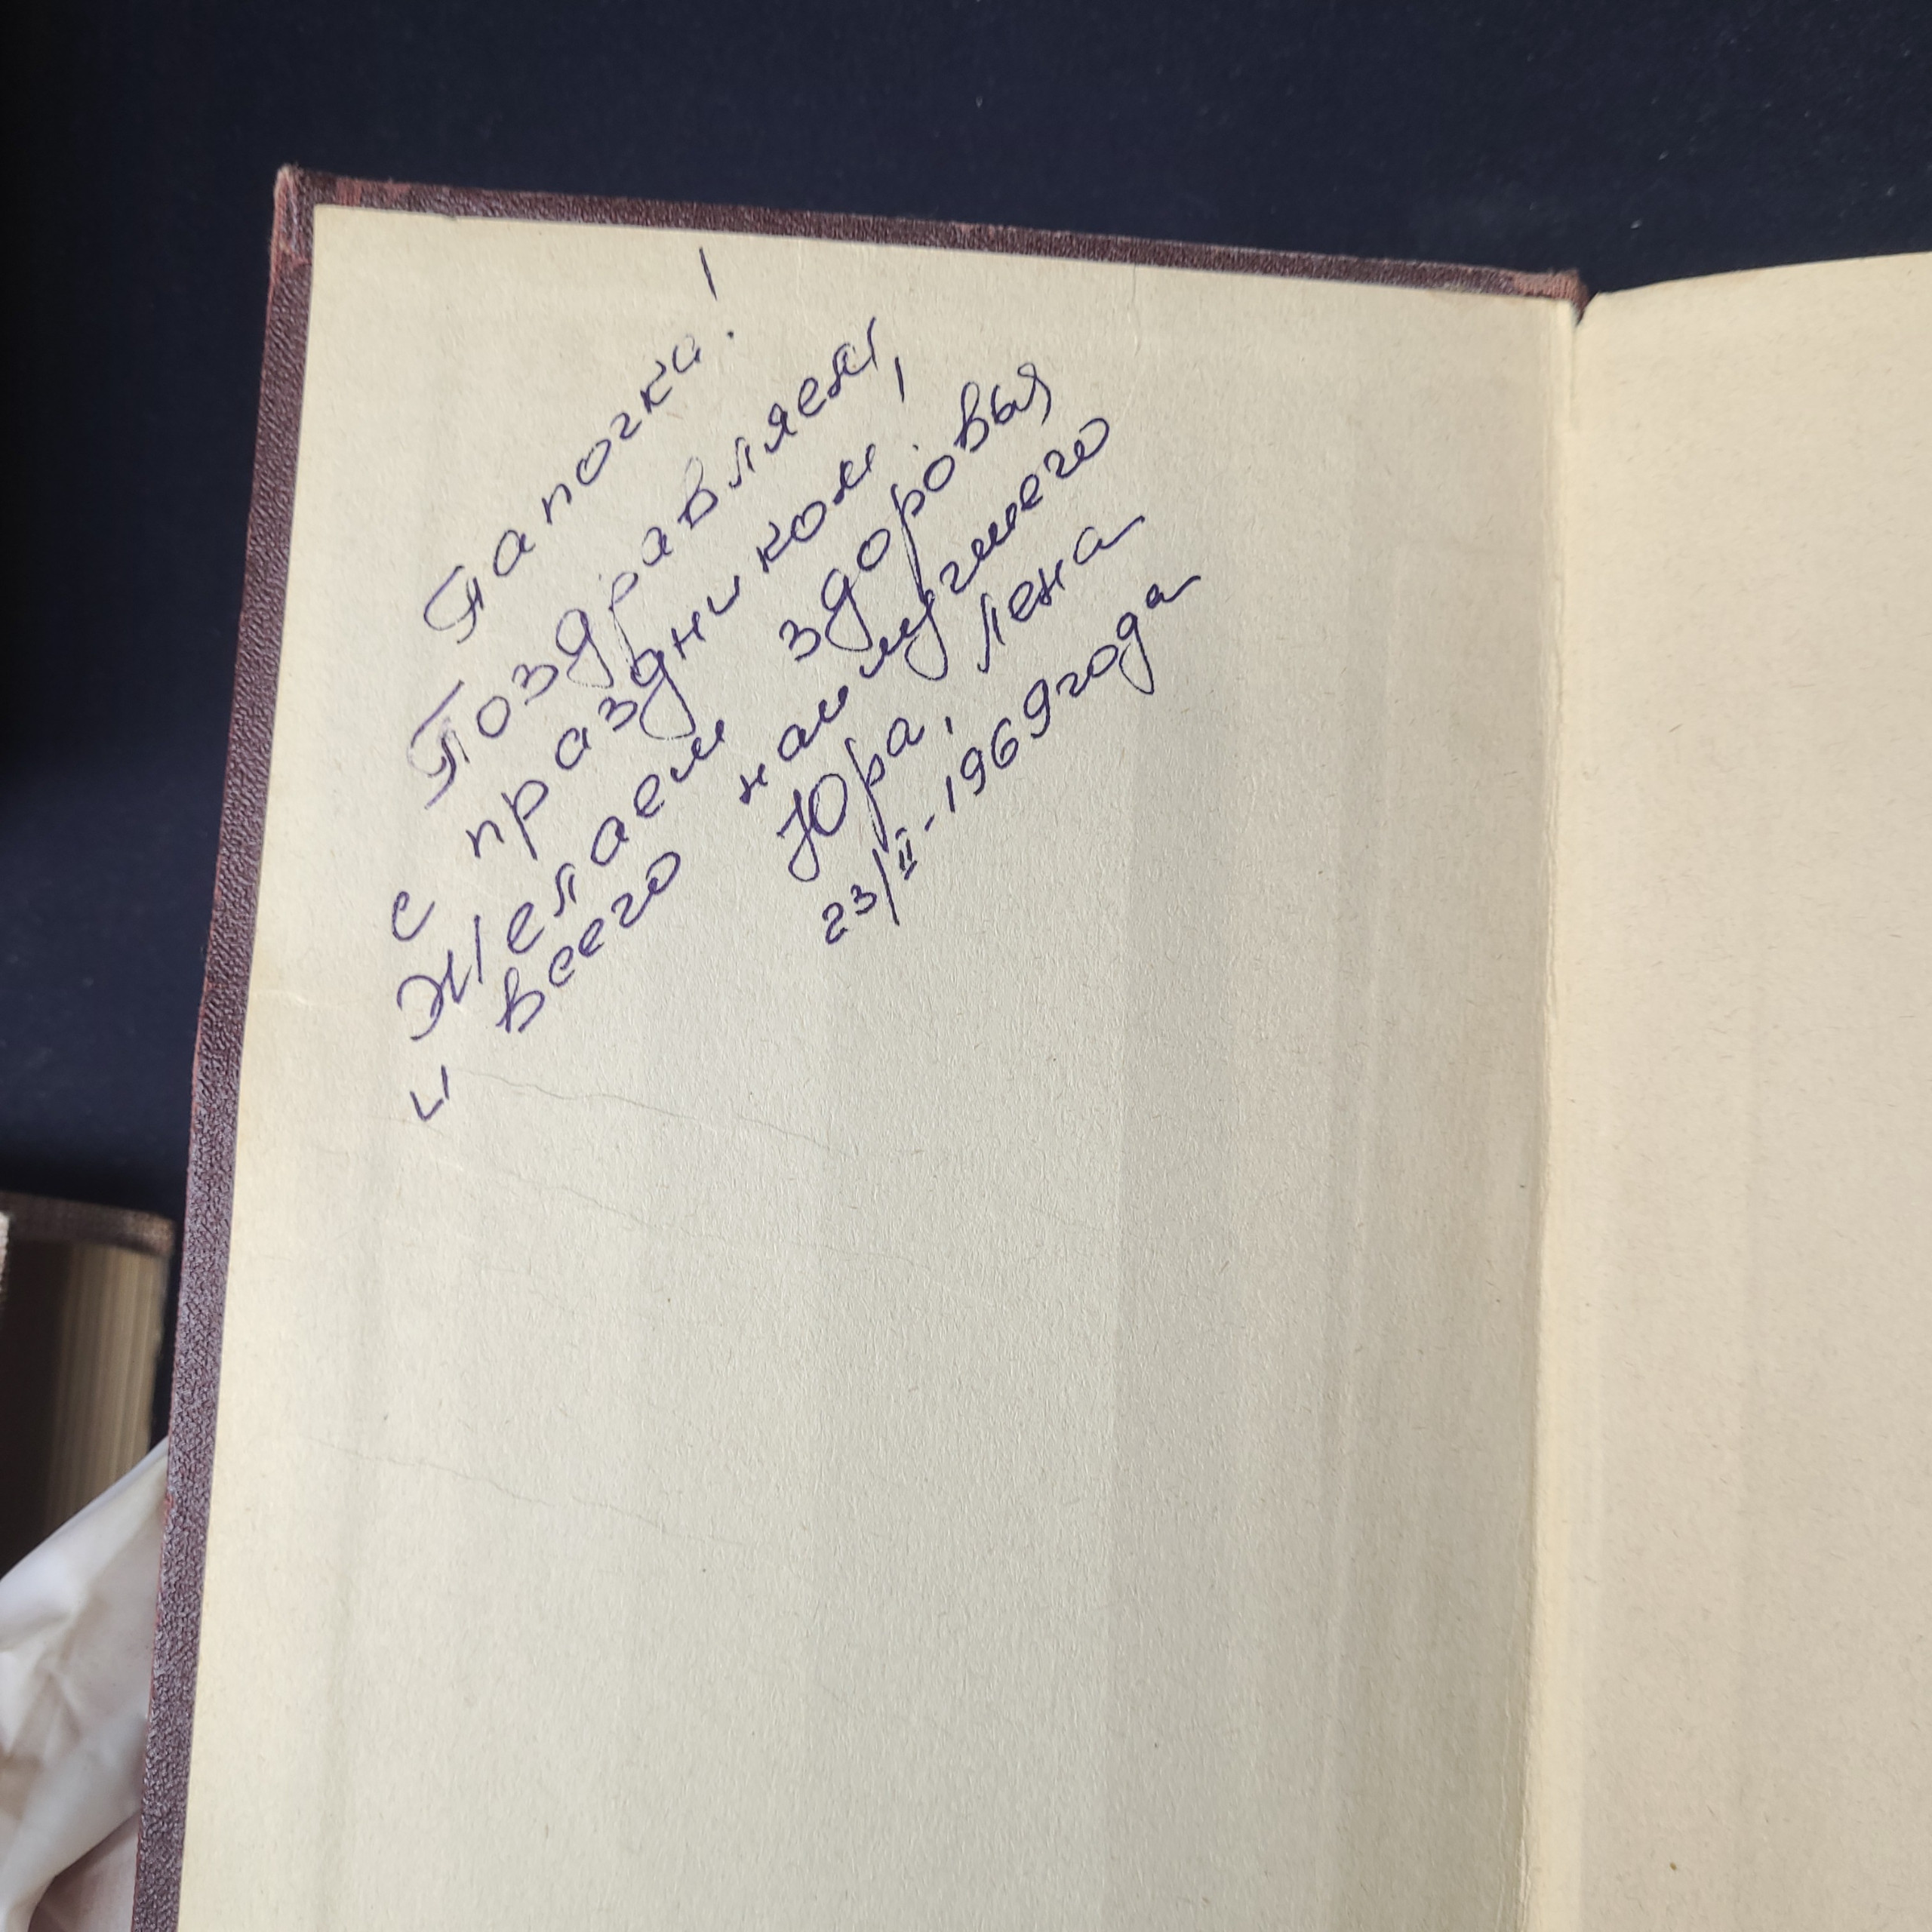 Папочка!
Поздравляем,
с праздником!
Желаем здоровья
и всего наилучшего
Юра, Лена
23/II-1969года